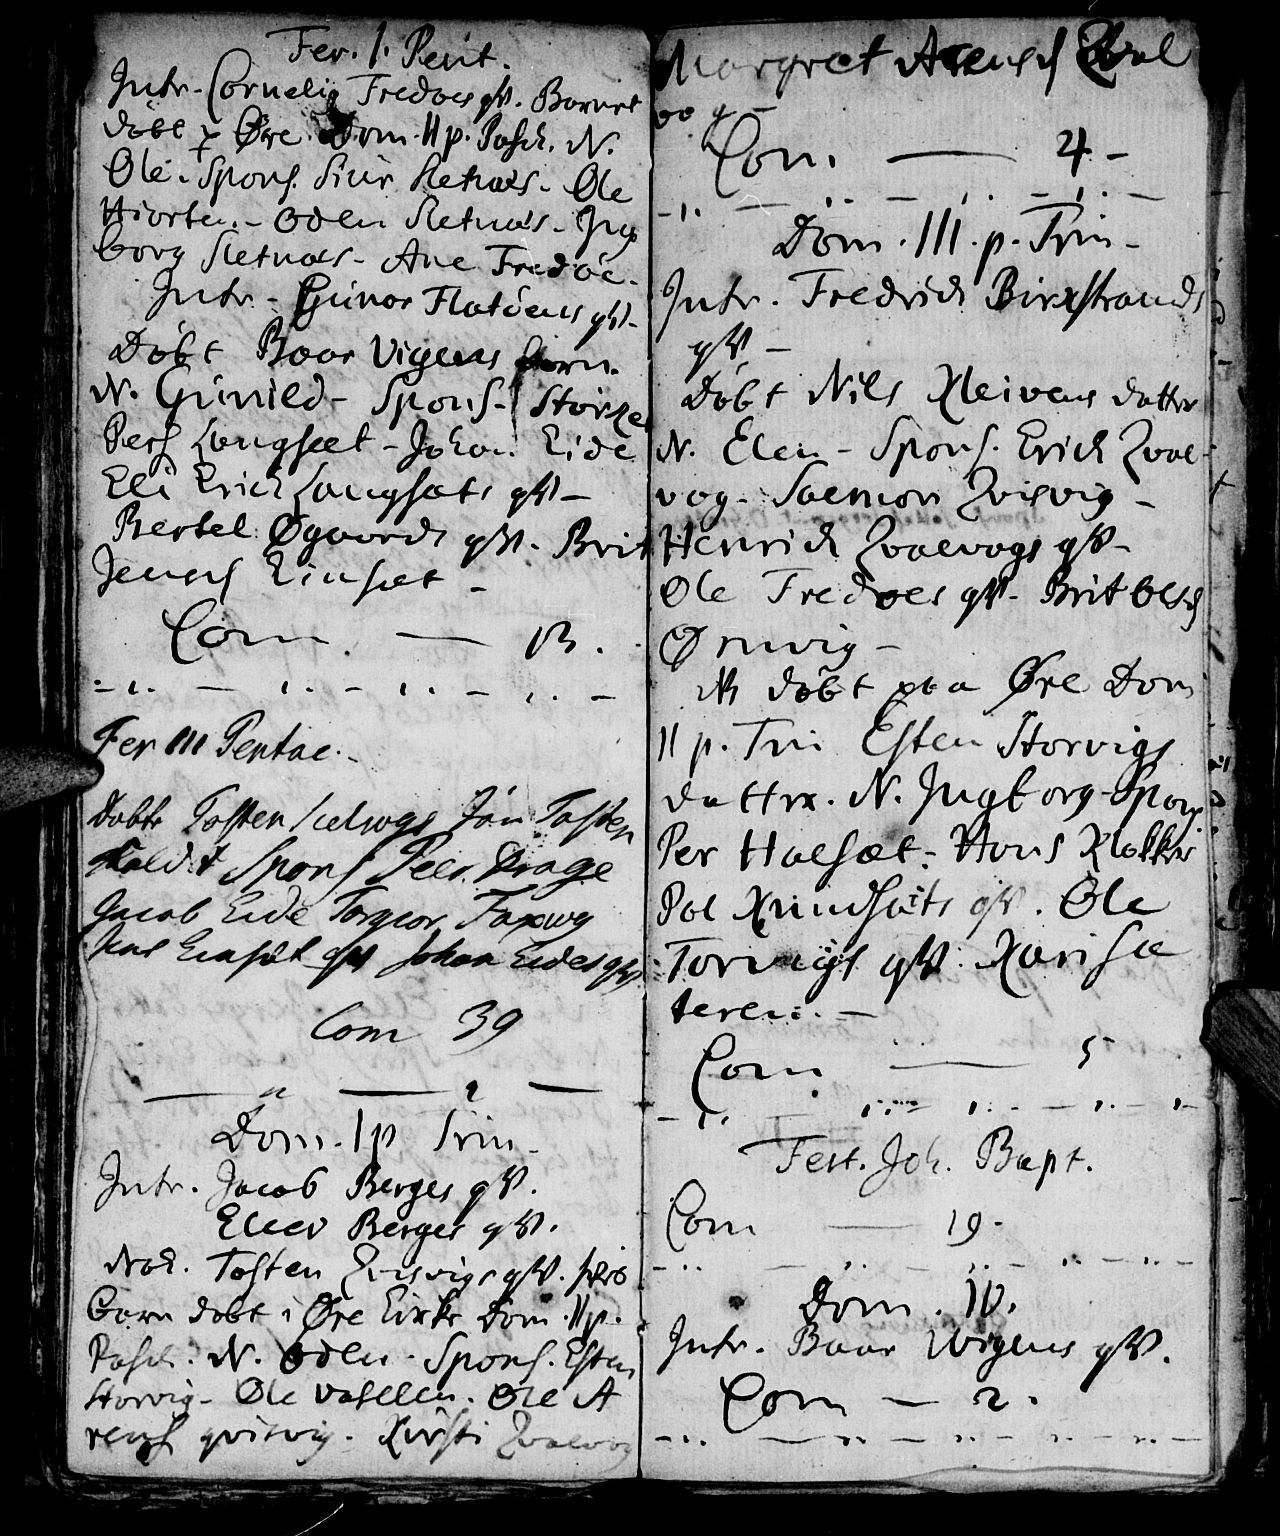 Fer. 1. Pent.
Intr. Cornelig Fredøes qv. Barnet
døbt p Øre Dom. II p. Pasch. N.
Ole. Spons. Siur Sletnæs - Ole
Hiorten - Oden Sletnæs - Ing
borg Sletnæs - Ane Fredøe.
Intr - Gunor Flatøens qv -
Døbt Baar Vigens barn.
N. Gunild - Spons - Størker
Pers Langsæt - Johan Eide
Eli Erich Langsæts qv -
Bertel Øgaards qv. Brit
Jensd Einset -
Com. — 13.
Fer III Pentac. -
Døbte Tosten Sælwogs Søn Tosten
kaldet Spons Peer Drage
Jacob Eide Torgior Faxwog
Jens Einsæt qv Johan Eides qv
Com 39
Dom. I p Trin -
Intr. Jacob Berges qv.
Elles Berges qv.
Nok. Tosten Qvisvigs qv.
barn døbt i Øre Kirke Dom. II p.
Pasch. N. Oden - Spons. Esten
Storvig - Ole Vasellen. Ole A
rensf qvisvig. Kirsti Qvalvog
Margret Arensd Qval
vog -
Com. — 4 -
Dom. III. p. Trin -
Intr. Fredrich Birxstrands
qv -
Døbt Nils Kleivens datter
N. Elen - Spons. Erich Qval-
vog - Salmon Qvisvig -
Henrich Qvalvogs qv -
Ole Fredøes qv - Brit Olsd
Ørnvig -
NB døbt paa Øre Dom
II p. Trin Esten Storvigs
datter. N. Ingborg - Spons
Per Halset - Hans Klokker
Pol Knudsæts qv. Ole
Torvigs qv. Kari Sæ
teren. -
Com — 5
Fest. Joh. Bapt.
Com — 19 -
Dom. IV.
Intr. Baar Wigens qv.
Com — 2.